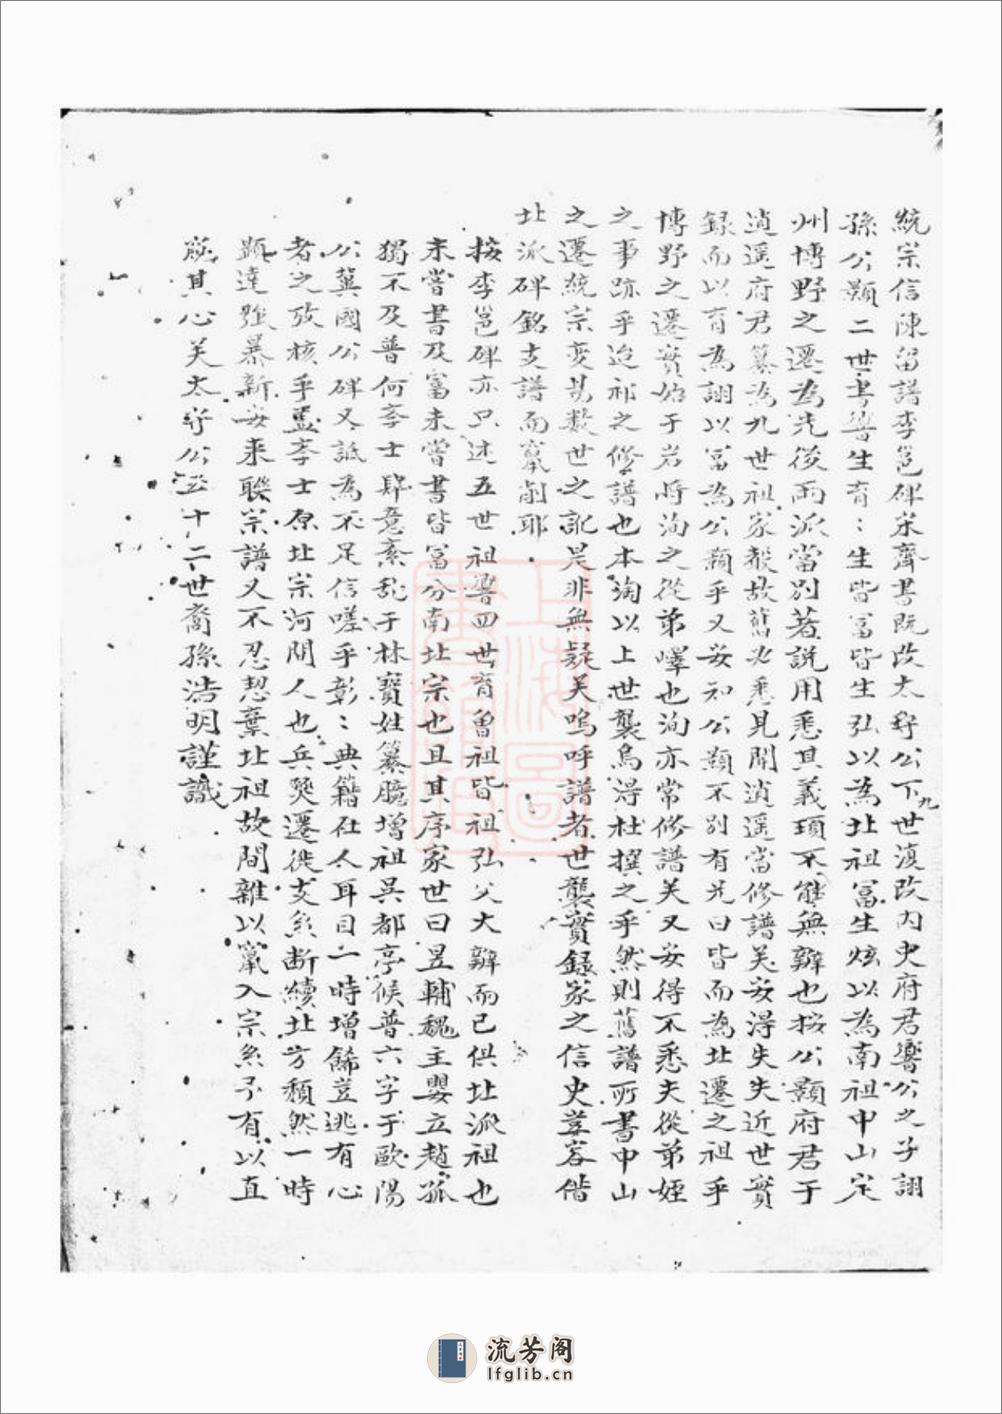 統宗信陳留譜李邕碑宋齊書既改太守公下九世復改内史府君響公之子詡
孫公顥二世書響生育：生皆冨皆生弘以為北祖冨生炫以為南祖中山定
州博野之遷為先後兩派當別著說用悉其義項不能無辯也按公顥府君于
逍遥府君纂為九世祖家報故舊必悉見聞逍遥當修譜矣安得失失近世實
録而以育為詡以冨為公顥乎又安知公顥不別有兄曰皆而為北遷之祖乎
博野之遷實始于岩將洵之從弟嶧也洵亦常修譜矣又安得不悉夫從弟姪
之事跡乎迨祁之修譜也本洵以上世襲烏得杜撰之乎然則舊譜所書中山
之遷統宗变甚数世之訛是非無疑矣嗚呼譜者世襲實錄家之信史葦容偕
北派碑銘支譜而摹削耶
按李邕碑亦只述五世祖響四世育曾祖皆祖弘父大辯而已俱北派祖也
未嘗書及富未嘗書皆富分南北宗也且其序家世曰昱輔魏主嬰立趙孤
獨不及普何李士肆意紊乱于林寶姓纂臆增祖吳都亭候普六字于歐陽
公冀國公碑又詆為不足信嗟乎彰：典籍在人耳目一時增餙豈逃有心
者之攷核乎盖李士原北宗河間人也兵燹遷徙支糸断續北方頹然一時
顕達強暴新安来聯宗譜又不忍恝棄北祖故間雜以竄入宗糸予有以直
誅其心矣太守公五十二世裔孫浩明謹識
上海圖書館藏
流芳阁
lfglib.cn